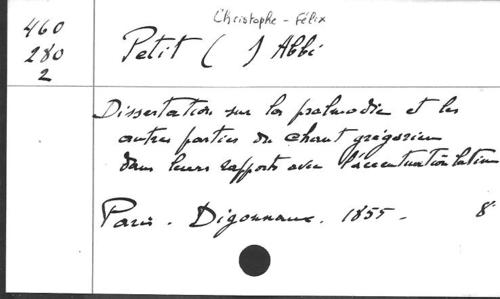 Christophe-Félix
460
280
2
Petit ( ) Abbé
Dissertation sur la psalmodie et les
autres parties du chant grégorien
dans leurs rapports avec l'accentuation latine
Paris. Digonnaux. 1855. 8°